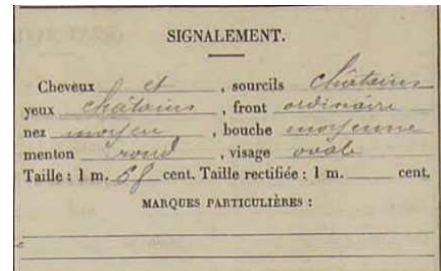 SIGNALEMENT.
Cheveux et , sourcils châtains
yeux châtains , front ordinaire
nez moyen , bouche moyenne
menton rond , visage ovale
Taille : 1 m. 68 cent. Taille rectifiée : 1 m. cent.
MARQUES PARTICULIÈRES :